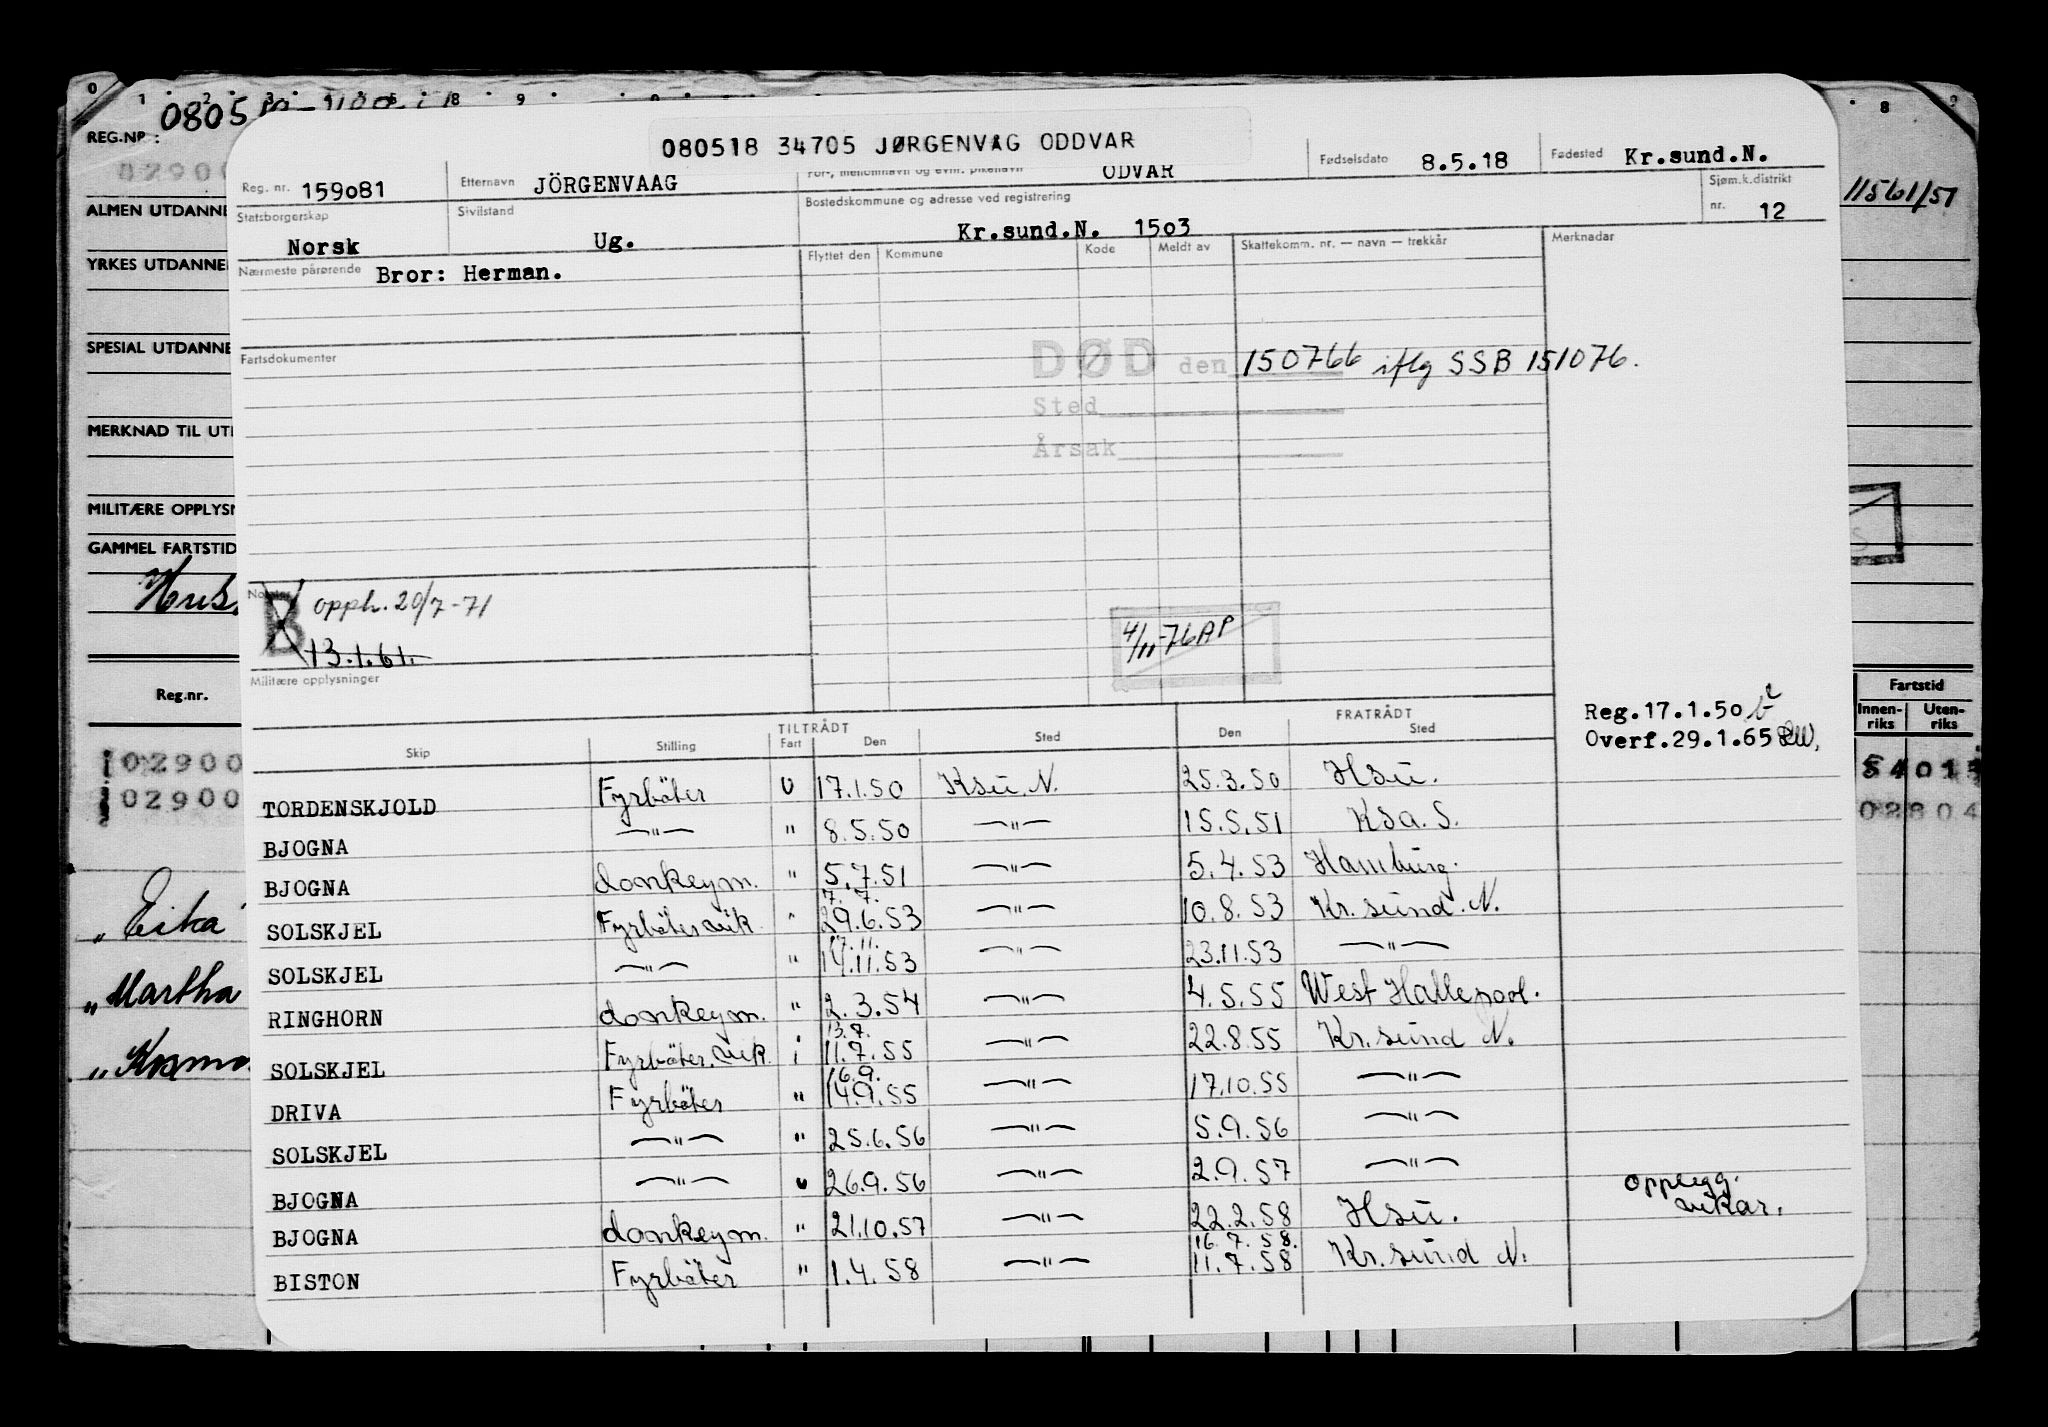 0 1 2 3 4 5 8 9 8
REG.NR: 0805
02900
ALMEN UTDANNE
YRKES UTDANNE
SPESIAL UTDANNE
MERKNAD TIL UT
MILITÆRE OPPLYSN
GAMMEL FARTSTID
Reg.nr.
102900
102900
„ Eika
„ Martha
„ Kosmo
11561/51
Fartstid
Innen-riks Uten-riks
54015
02804
080518 34705 JØRGENVAG ODDVAR
Reg. nr. 159o81 Etternavn JÖRGENVAAG For-, mellomnavn og evnt. pikenavn ODVAR Fødselsdato 8.5.18 Fødested Kr.sund.N.
Statsborgerskap Norsk Sivilstand Ug. Bostedskommune og adresse ved registrering Kr.sund.N. 15o3 Sjøm.k.distrikt nr. 12
Nærmeste pårørende Bror: Herman. Flyttet den Kommune Kode Meldt av Skattekomm. nr. — navn — trekkår Merknadar
Fartsdokumenter
DØD den 150766 iflg SSB 151076.
Sted
Årsak
B opph. 20/7-71
13.1.61.
4/11-76 AP
Militære opplysninger
Reg.17.1.50
Overf.29.1.65 RW,
TILTRÅDT FRATRÅDT
Skip Stilling Fart Den Sted Den Sted
TORDENSKJOLD Fyrböter U 17.1.50 Ksu. N. 25.3.50 Hsu.
BJOGNA —"— " 8.5.50 —"— 15.5.51 Ksa. S.
BJOGNA donkeym. " 5.7.51 —"— 5.4.53 Hamburg.
7. 7.
SOLSKJEL Fyrböter vik. " 29.6.53 —"— 10.8.53 Kr. sund. N.
17.11.
SOLSKJEL —"— " 14.11.53 —"— 23.11.53 —"—
RINGHORN donkeym. " 2.3.54 —"— 4.5.55 West Hallepool.
13.7.
SOLSKJEL Fyrböter. vik. i 11.7.55 —"— 22.8.55 Kr. sund N.
16.9.
DRIVA Fyrböter " 14.9.55 —"— 17.10.55 —"—
SOLSKJEL —"— " 25.6.56 —"— 5.9.56 —"—
BJOGNA —"— u 26.9.56 —"— 2.9.57 —"—
BJOGNA donkeym. " 21.10.57 —"— 22.2.58 Hsu. opplegg. vikar.
16. 7. 58.
BISTON Fyrböter " 1.4.58 —"— 11.7.58 Kr. sund N.